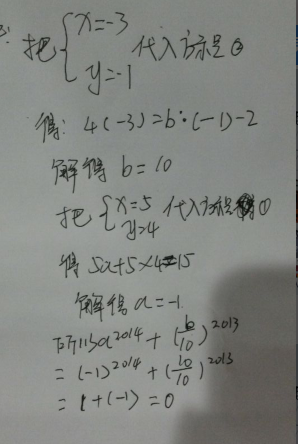 把{x=-3
y=-1 代入方程②
得: 4(-3)=b·(-1)-2
解得 b=10
把{x=5
y=4 代入方程①
得 5a+5×4=15
解得 a=-1
所以a²⁰¹⁴+(b/10)²⁰¹³
=(-1)²⁰¹⁴+(10/10)²⁰¹³
=1+(-1)=0